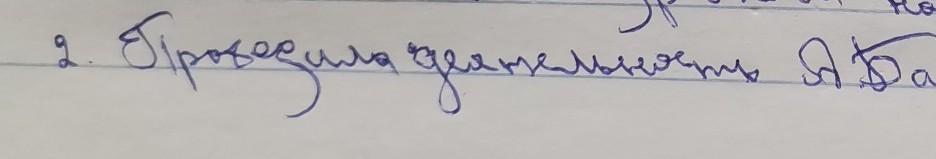 2. Проводила деятельность